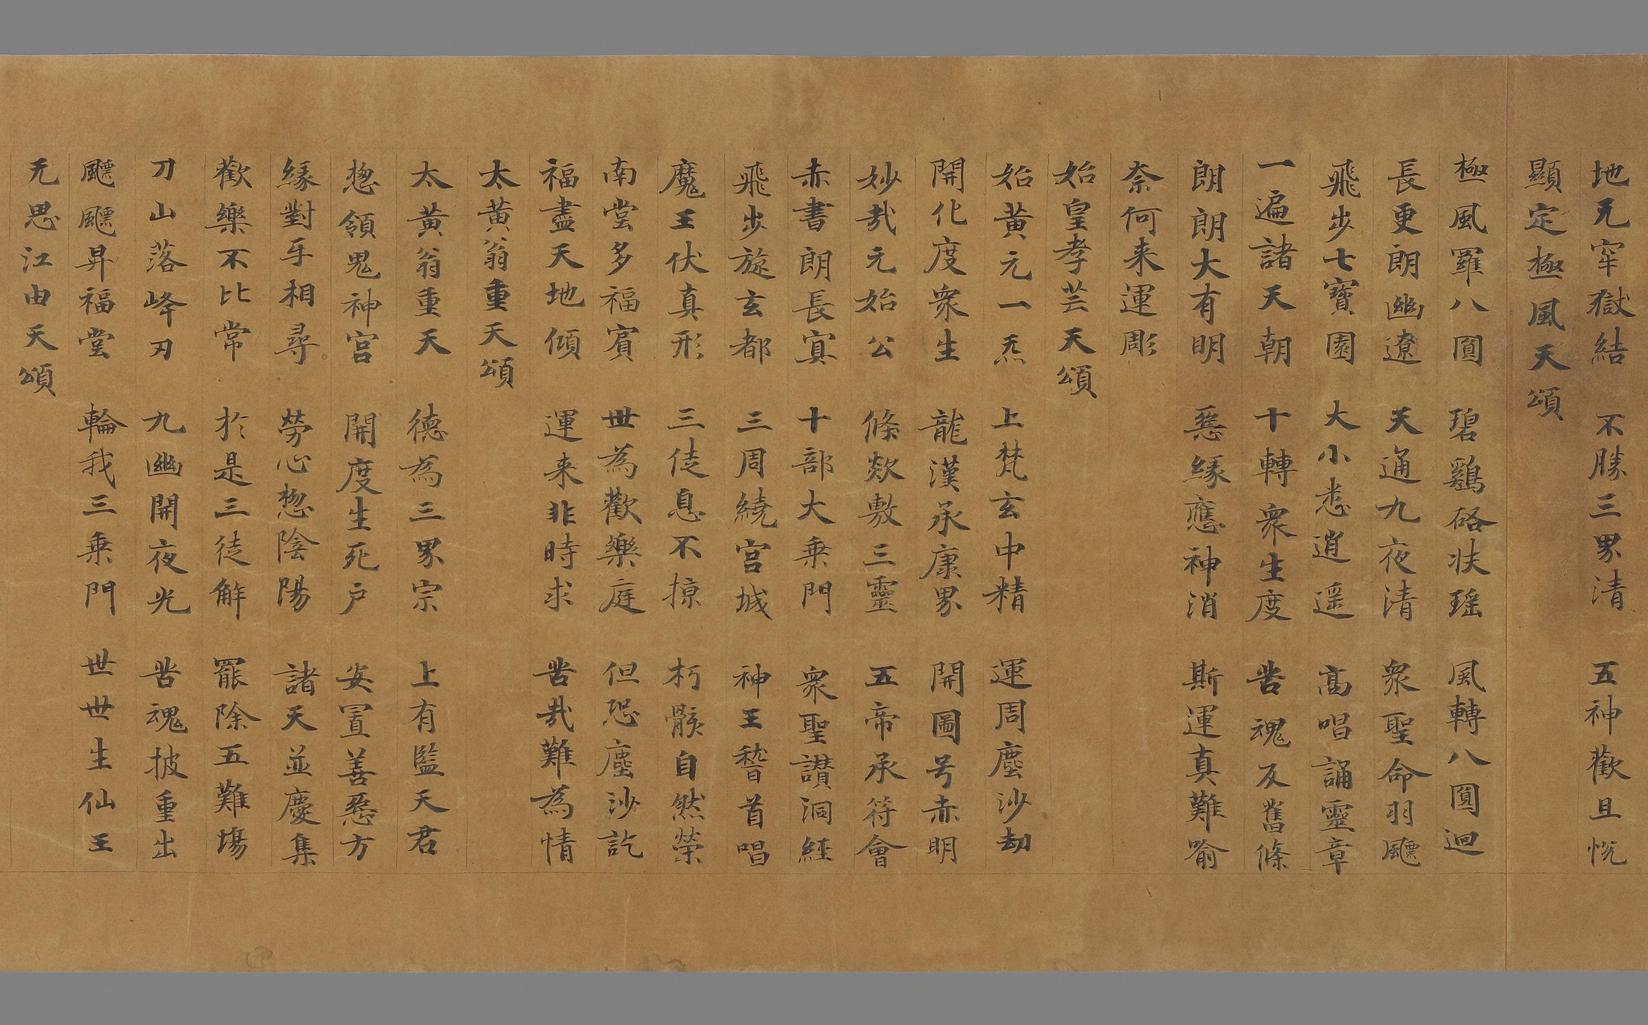 地元牢獄結 不勝三界清 五神歡且悅
顯定極風天頌
極風羅八圓 碧鷄硌狀瑶 風轉八圓迴
長更朗幽遼 天通九夜清 衆聖命羽飈
飛步七寶園 大小悉逍遥 高唱誦靈章
一遍諸天朝 十轉衆生度 苦魂反舊條
朗朗大有明 惡緣應神消 斯運真難喻
奈何来運彫
始皇孝芸天頌
始黃元一炁 上梵玄中精 運周塵沙劫
開化度衆生 龍漢承康界 開圖号赤明
妙哉元始公 條欻敷三靈 五帝承符會
赤書朗長冥 十部大乗門 衆聖讃洞經
飛步旋玄都 三周繞宫城 神王稽首唱
魔王伏真形 三徒息不掠 朽骸自然榮
南堂多福賓 世為歡樂庭 但恐塵沙訖
福盡天地傾 運来非時求 苦哉難為情
太黃翁重天頌
太黃翁重天 德為三界宗 上有監天君
惣領鬼神宫 開度生死户 安置善惡方
緣對牙相尋 勞心惣陰陽 諸天並慶集
歡樂不比常 於是三徒解 罷除五難場
刀山落峰刃 九幽開夜光 苦魂披重出
飈飈昇福堂 輪我三乗門 世世生仙王
无思江由天頌